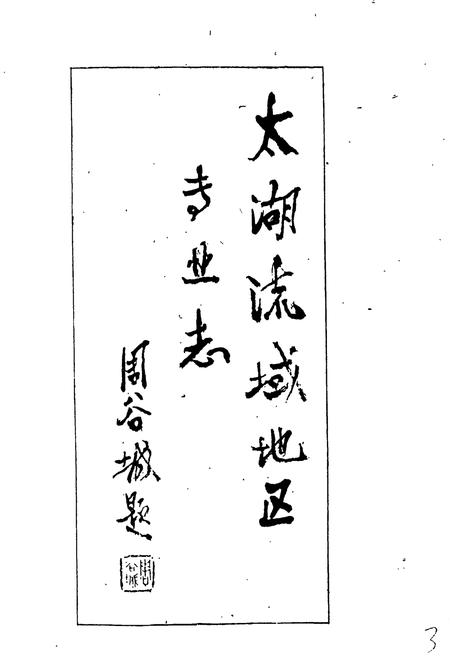 太湖流域地区
专业志
周谷城题
周谷城
3